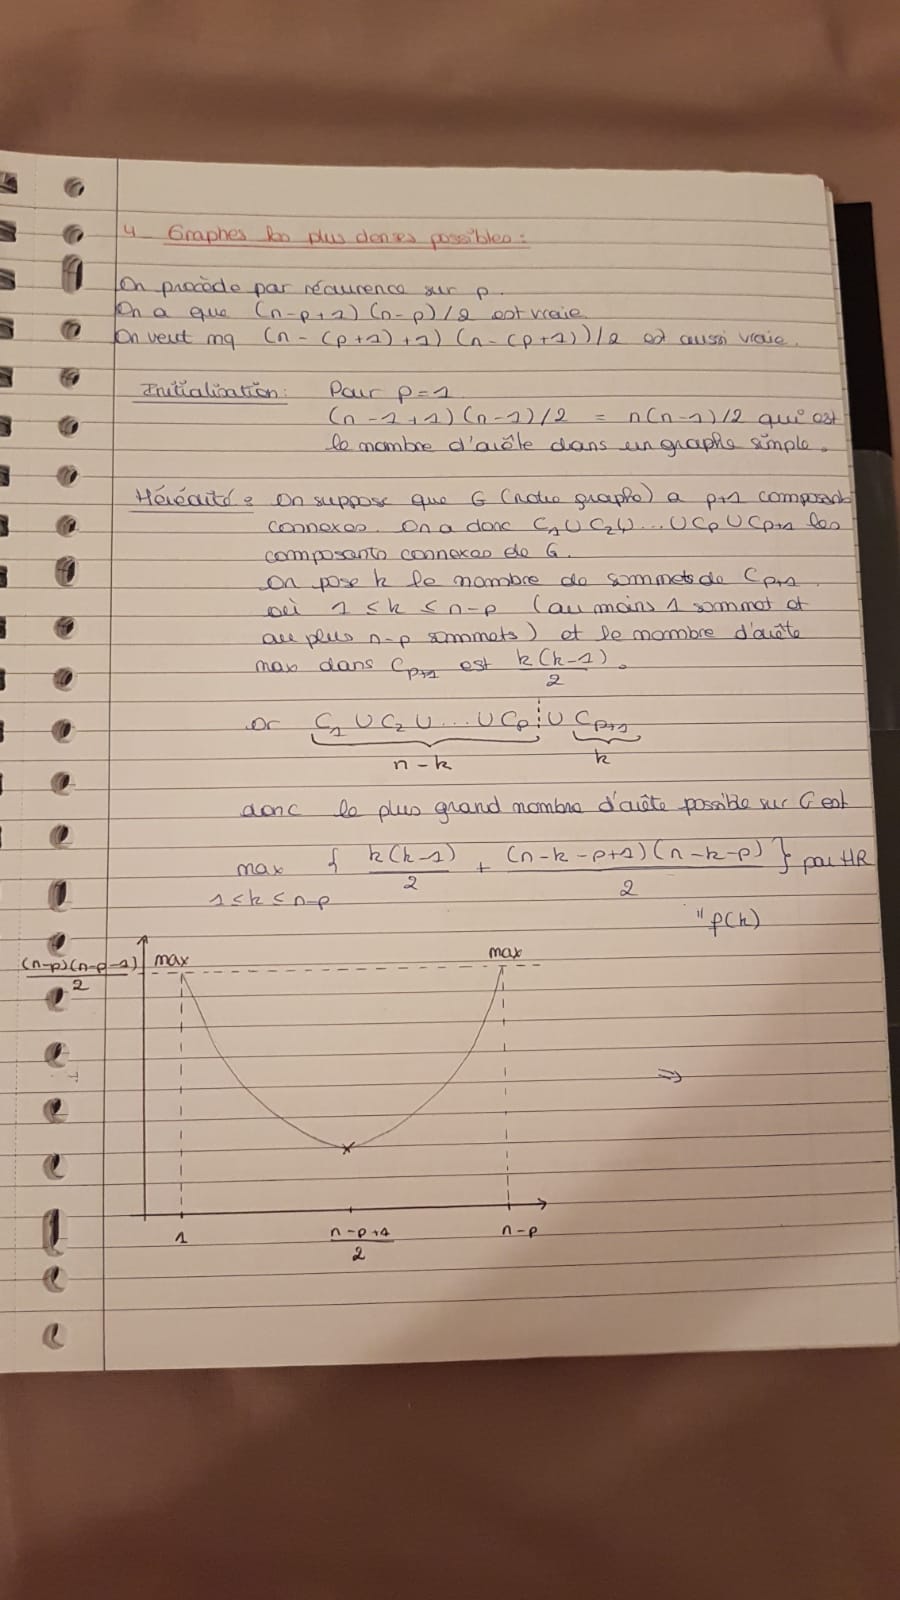 4_ Graphes les plus denses possibles :
On procède par récurrence sur p.
On a que (n-p+1)(n-p)/2 est vraie.
On veut mq (n-(p+1)+1)(n-(p+1))/2 est aussi vraie.
Initialisation: Pour p=1
(n-1+1)(n-1)/2 = n(n-1)/2 qui est
le nombre d'arête dans un graphe simple.
Hérédité : On suppose que G (notre graphe) a p+1 composants
connexes. On a donc C₁ ∪ C₂ ∪ ... ∪ Cp ∪ Cp+1 les
composants connexes de G.
On pose k le nombre de sommets de Cp+1
où 1 ≤ k ≤ n-p (au moins 1 sommet et
au plus n-p sommets) et le nombre d'arête
max dans Cp+1 est k(k-1)/2.
Or C₁ ∪ C₂ ∪ ... ∪ Cp ∪ Cp+1
n-k k
donc le plus grand nombre d'arête possible sur G est
max { k(k-1)/2 + (n-k-p+1)(n-k-p)/2 } par HR
1≤k≤n-p
"f(k)
(n-p)(n-p-1)/2 max max
⇒
1 (n-p+1)/2 n-p